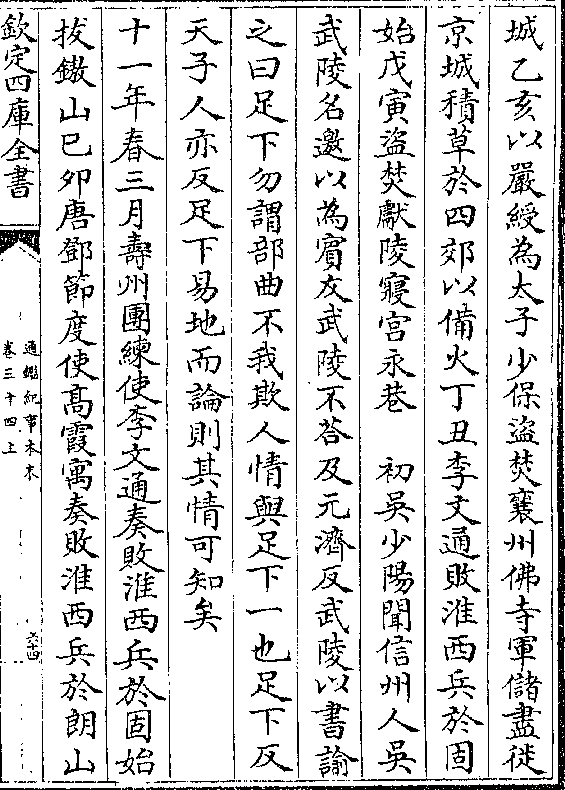 城乙亥以嚴綬為太子少保盜焚襄州佛寺軍儲盡徙
京城積草於四郊以備火丁丑李文通敗淮西兵於固
始戊寅盜焚獻陵寢宫永巷　初吳少陽聞信州人吳
武陵名邀以為賓友武陵不荅及元濟反武陵以書諭
之曰足下勿謂部曲不我欺人情與足下一也足下反
天子人亦反足下易地而論則其情可知矣
十一年春三月壽州團練使李文通奏敗淮西兵於固始
拔鏾山己卯唐鄧節度使髙霞寓奏敗淮西兵於朗山
欽定四庫全書
通鑑紀事本末
卷三十四上
六十四